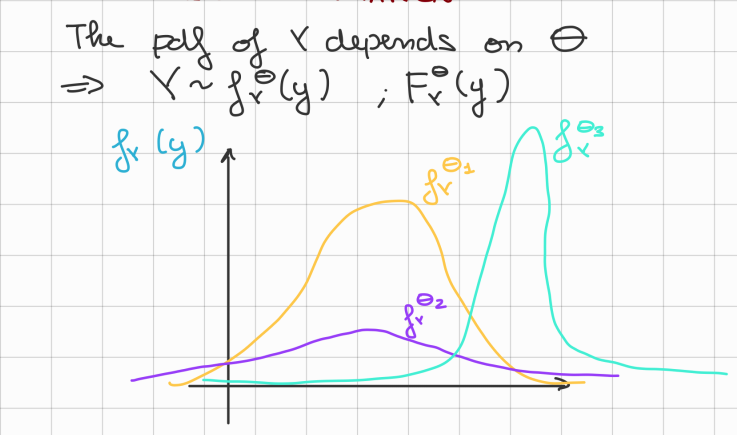 The pdf of Y depends on Θ
⇒ Y ~ f_Y^Θ(y) ; F_Y^Θ(y)
f_Y(y)
f_Y^Θ1
f_Y^Θ2
f_Y^Θ3